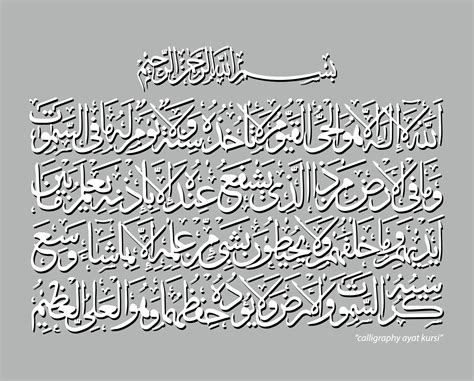 بسم الله الرحمن الرحيم
الله لا إله إلا هو الحي القيوم لا تأخذه سنة ولا نوم له ما في السموت
وما في الأرض من ذا الذي يشفع عنده إلا بإذنه يعلم ما بين
أيديهم وما خلفهم ولا يحيطون بشيء من علمه إلا بما شاء وسع
كرسيه السموت والأرض ولا يؤده حفظهما وهو العلي العظيم
"calligraphy ayat kursi"